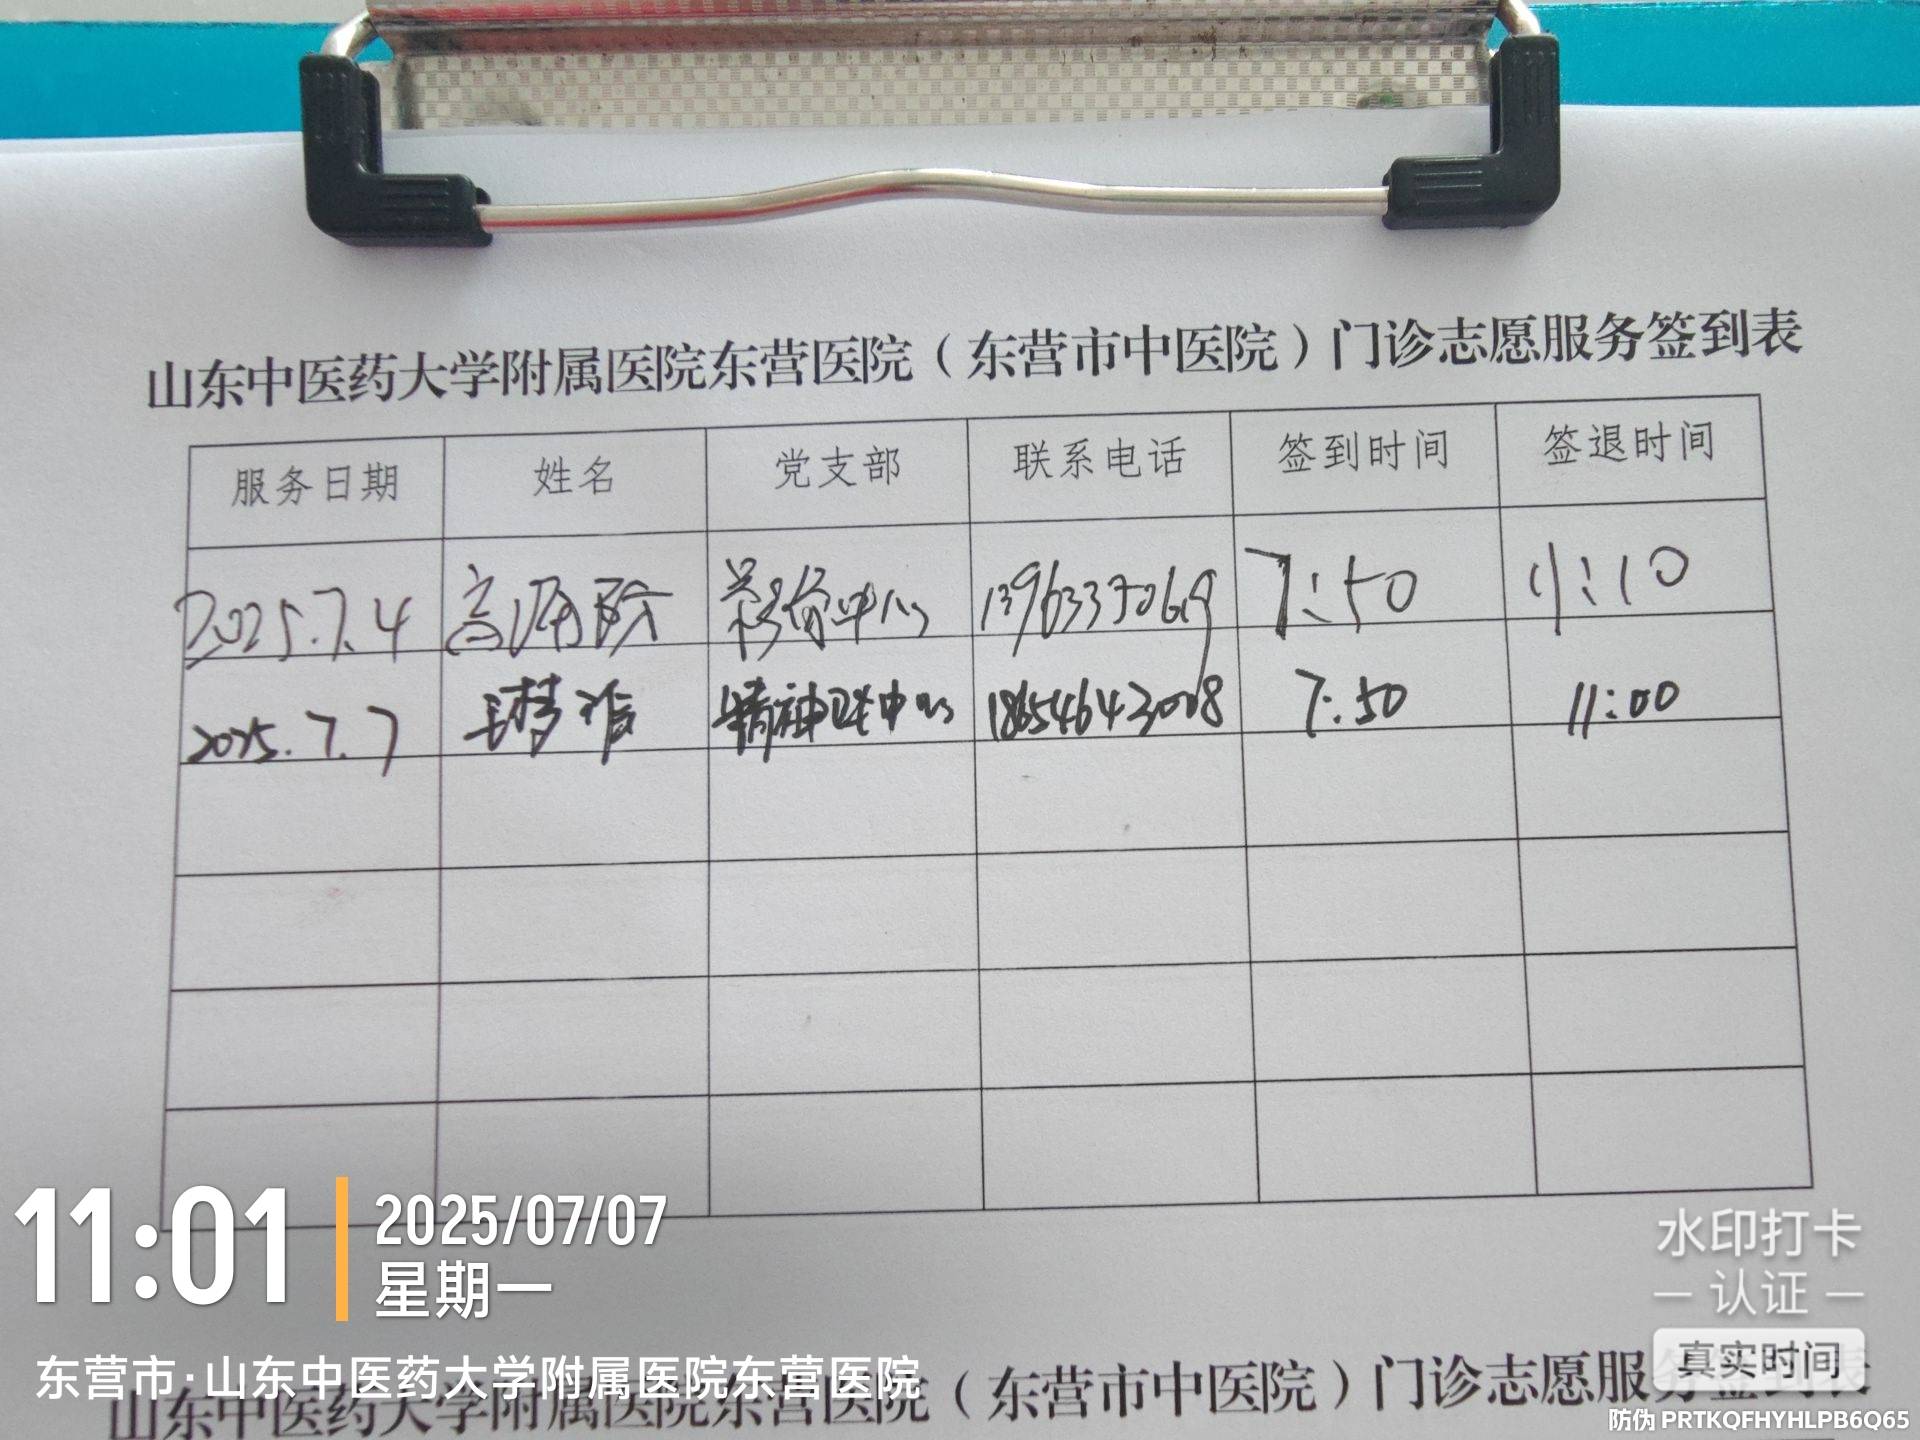 山东中医药大学附属医院东营医院（东营市中医院）门诊志愿服务签到表
服务日期 姓名 党支部 联系电话 签到时间 签退时间
2025.7.4 高 中心 7:50 11:10
2025.7.7 王梦 精神卫生中心 18654643008 7:50 11:00
11:01
2025/07/07
星期一
东营市·山东中医药大学附属医院东营医院
水印打卡
认证
真实时间
山东中医药大学附属医院东营医院（东营市中医院）门诊志愿服务签到表
防伪 PRTKQFHYHLPB6Q65